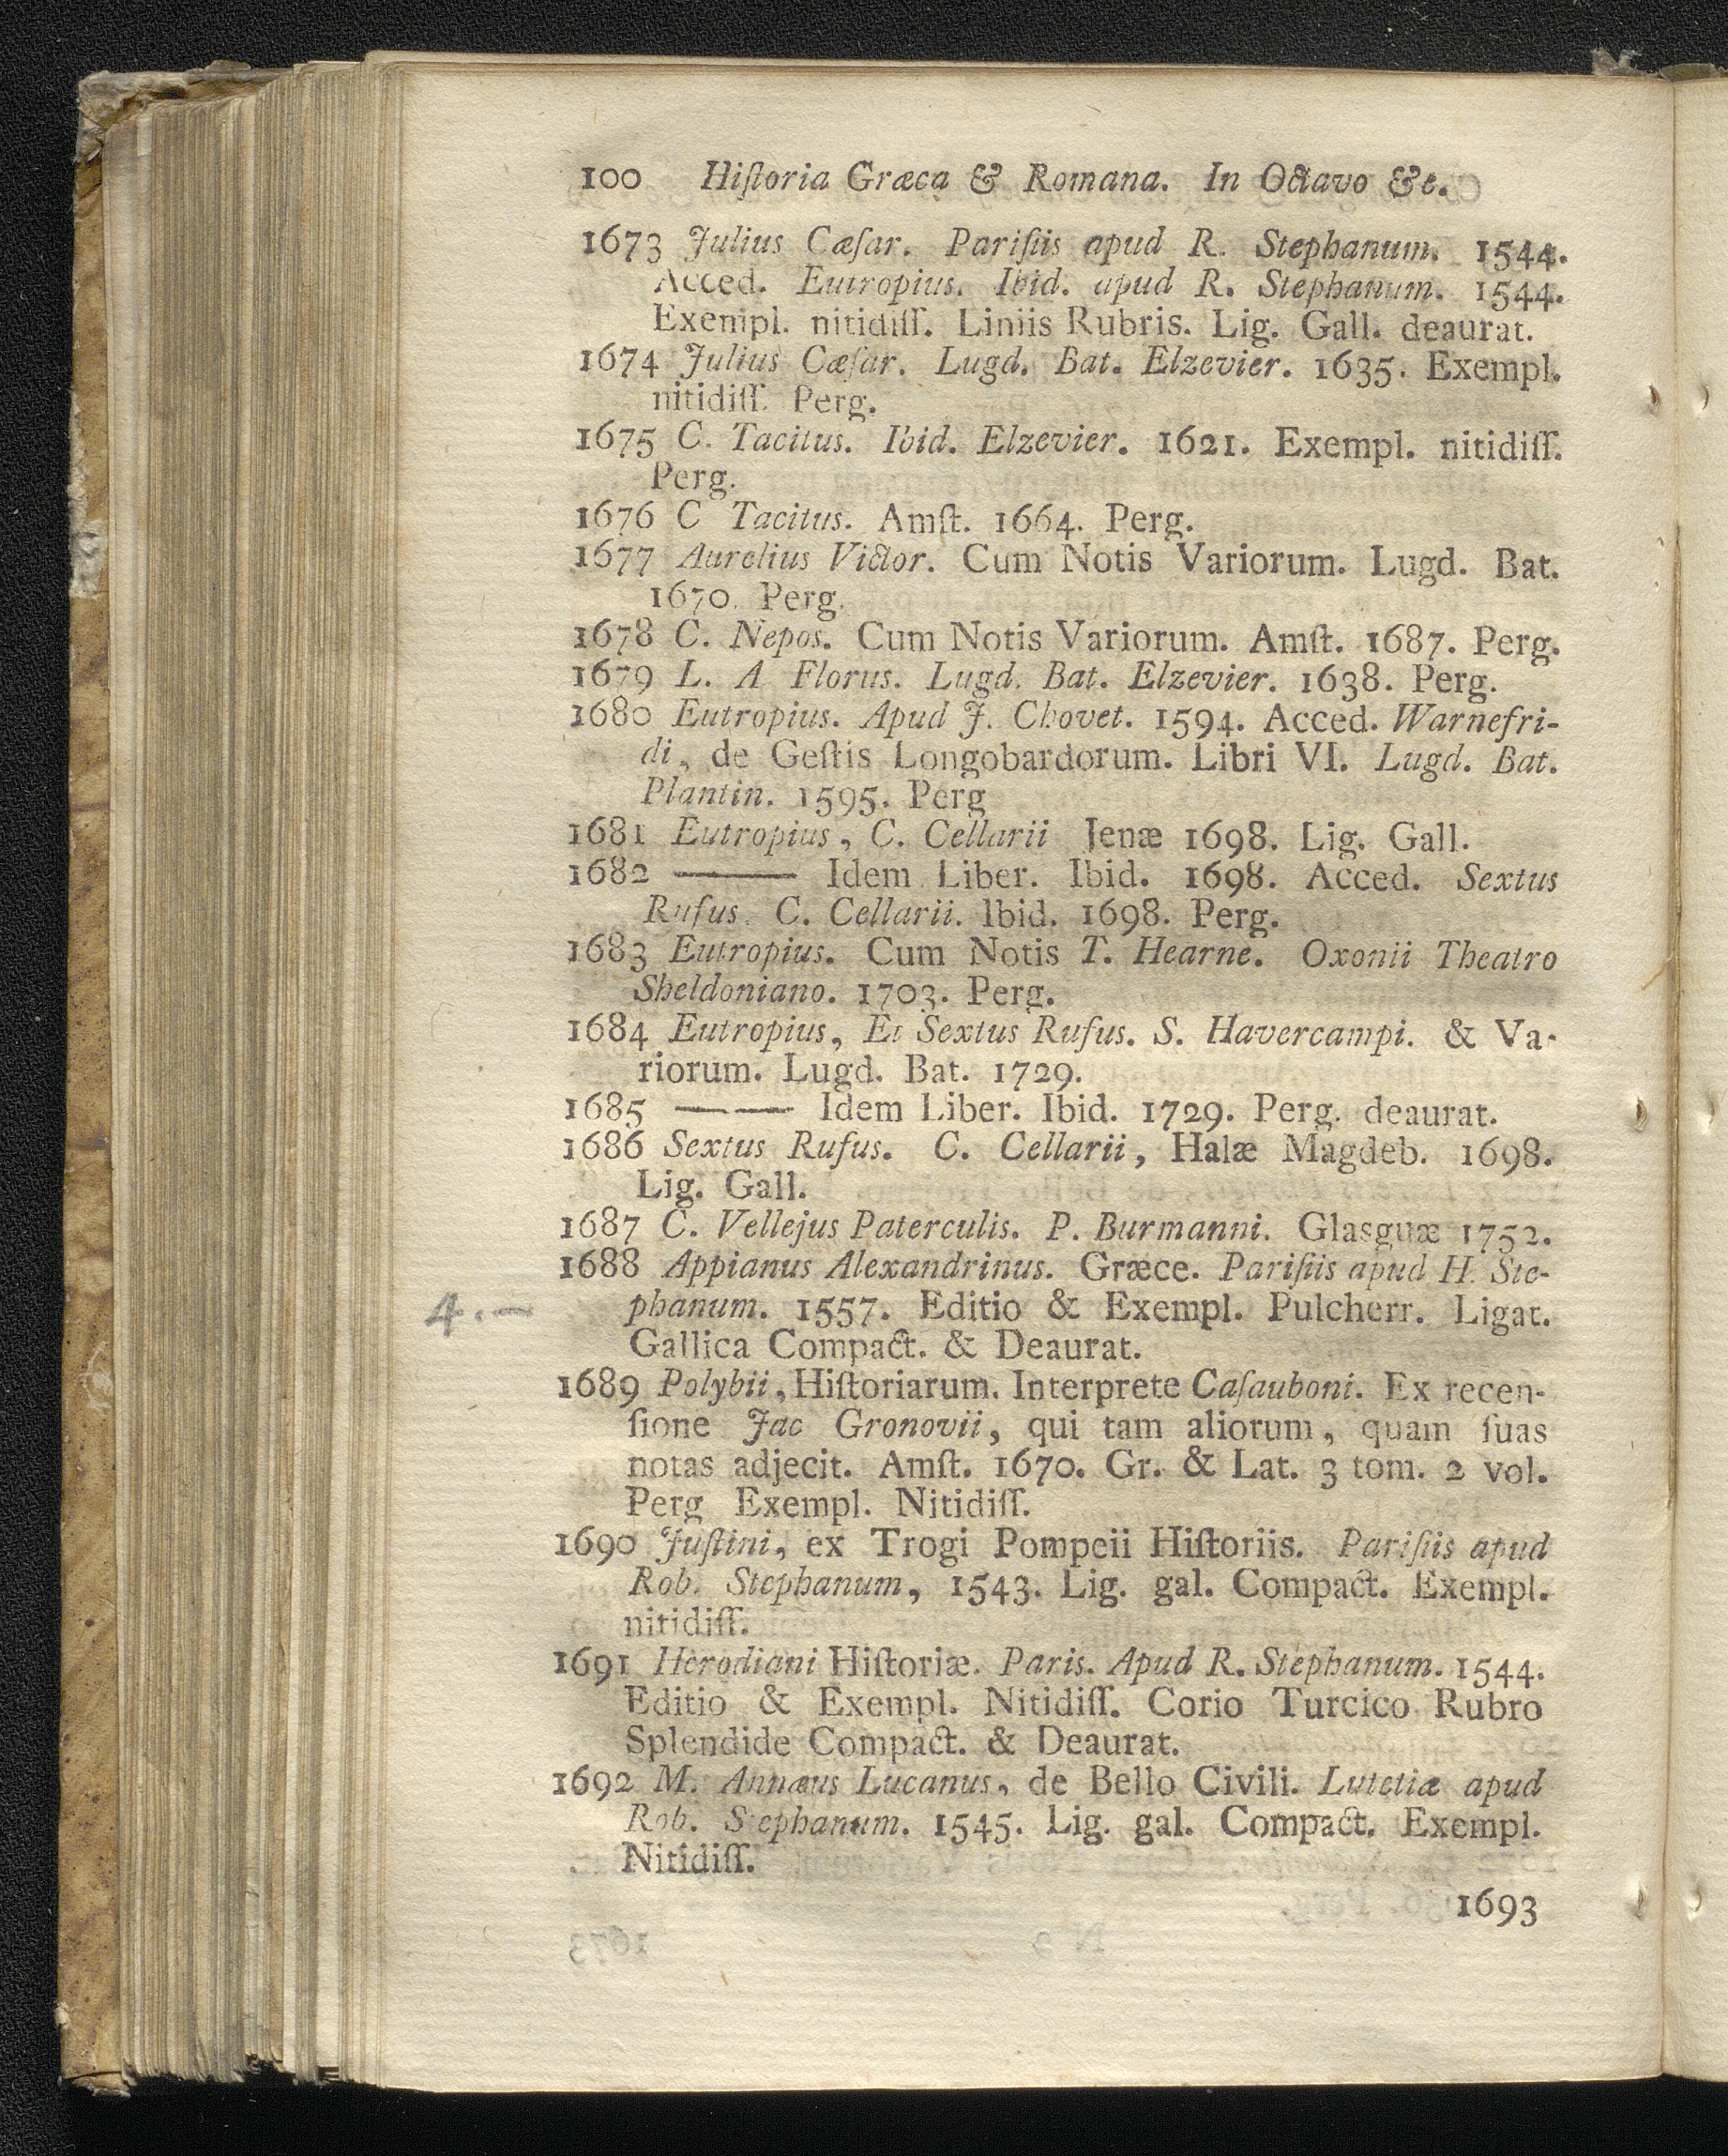 100 Hiſtoria Græca & Romana. In Octavo &c.
1673 Julius Cæſar. Pariſiis apud R. Stephanum. 1544.
Acced. Eutropius. Ibid. apud R. Stephanum. 1544.
Exempl. nitidiſſ. Liniis Rubris. Lig. Gall. deaurat.
1674 Julius Cæſar. Lugd. Bat. Elzevier. 1635. Exempl.
nitidiſſ. Perg.
1675 C. Tacitus. Ibid. Elzevier. 1621. Exempl. nitidiſſ.
Perg.
1676 C Tacitus. Amſt. 1664. Perg.
1677 Aurelius Victor. Cum Notis Variorum. Lugd. Bat.
1670. Perg.
1678 C. Nepos. Cum Notis Variorum. Amſt. 1687. Perg.
1679 L. A Florus. Lugd. Bat. Elzevier. 1638. Perg.
1680 Eutropius. Apud J. Chovet. 1594. Acced. Warnefri-
di, de Geſtis Longobardorum. Libri VI. Lugd. Bat.
Plantin. 1595. Perg
1681 Eutropius, C. Cellarii Jenæ 1698. Lig. Gall.
1682 ——— Idem Liber. Ibid. 1698. Acced. Sextus
Rufus. C. Cellarii. Ibid. 1698. Perg.
1683 Eutropius. Cum Notis T. Hearne. Oxonii Theatro
Sheldoniano. 1703. Perg.
1684 Eutropius, Et Sextus Rufus. S. Havercampi. & Va-
riorum. Lugd. Bat. 1729.
1685 —— Idem Liber. Ibid. 1729. Perg. deaurat.
1686 Sextus Rufus. C. Cellarii, Halæ Magdeb. 1698.
Lig. Gall.
1687 C. Vellejus Paterculis. P. Burmanni. Glasguæ 1752.
1688 Appianus Alexandrinus. Græce. Pariſiis apud H. Ste-
4.— phanum. 1557. Editio & Exempl. Pulcherr. Ligat.
Gallica Compact. & Deaurat.
1689 Polybii, Hiſtoriarum. Interprete Caſauboni. Ex recen-
ſione Jac Gronovii, qui tam aliorum, quam ſuas
notas adjecit. Amſt. 1670. Gr. & Lat. 3 tom. 2 vol.
Perg Exempl. Nitidiſſ.
1690 Juſtini, ex Trogi Pompeii Hiſtoriis. Pariſiis apud
Rob. Stephanum, 1543. Lig. gal. Compact. Exempl.
nitidiſſ.
1691 Herodiani Hiſtoriæ. Paris. Apud R. Stephanum. 1544.
Editio & Exempl. Nitidiſſ. Corio Turcico Rubro
Splendide Compact. & Deaurat.
1692 M. Annæus Lucanus, de Bello Civili. Lutetiæ apud
Rob. Stephanum. 1545. Lig. gal. Compact. Exempl.
Nitidiſſ.
1693